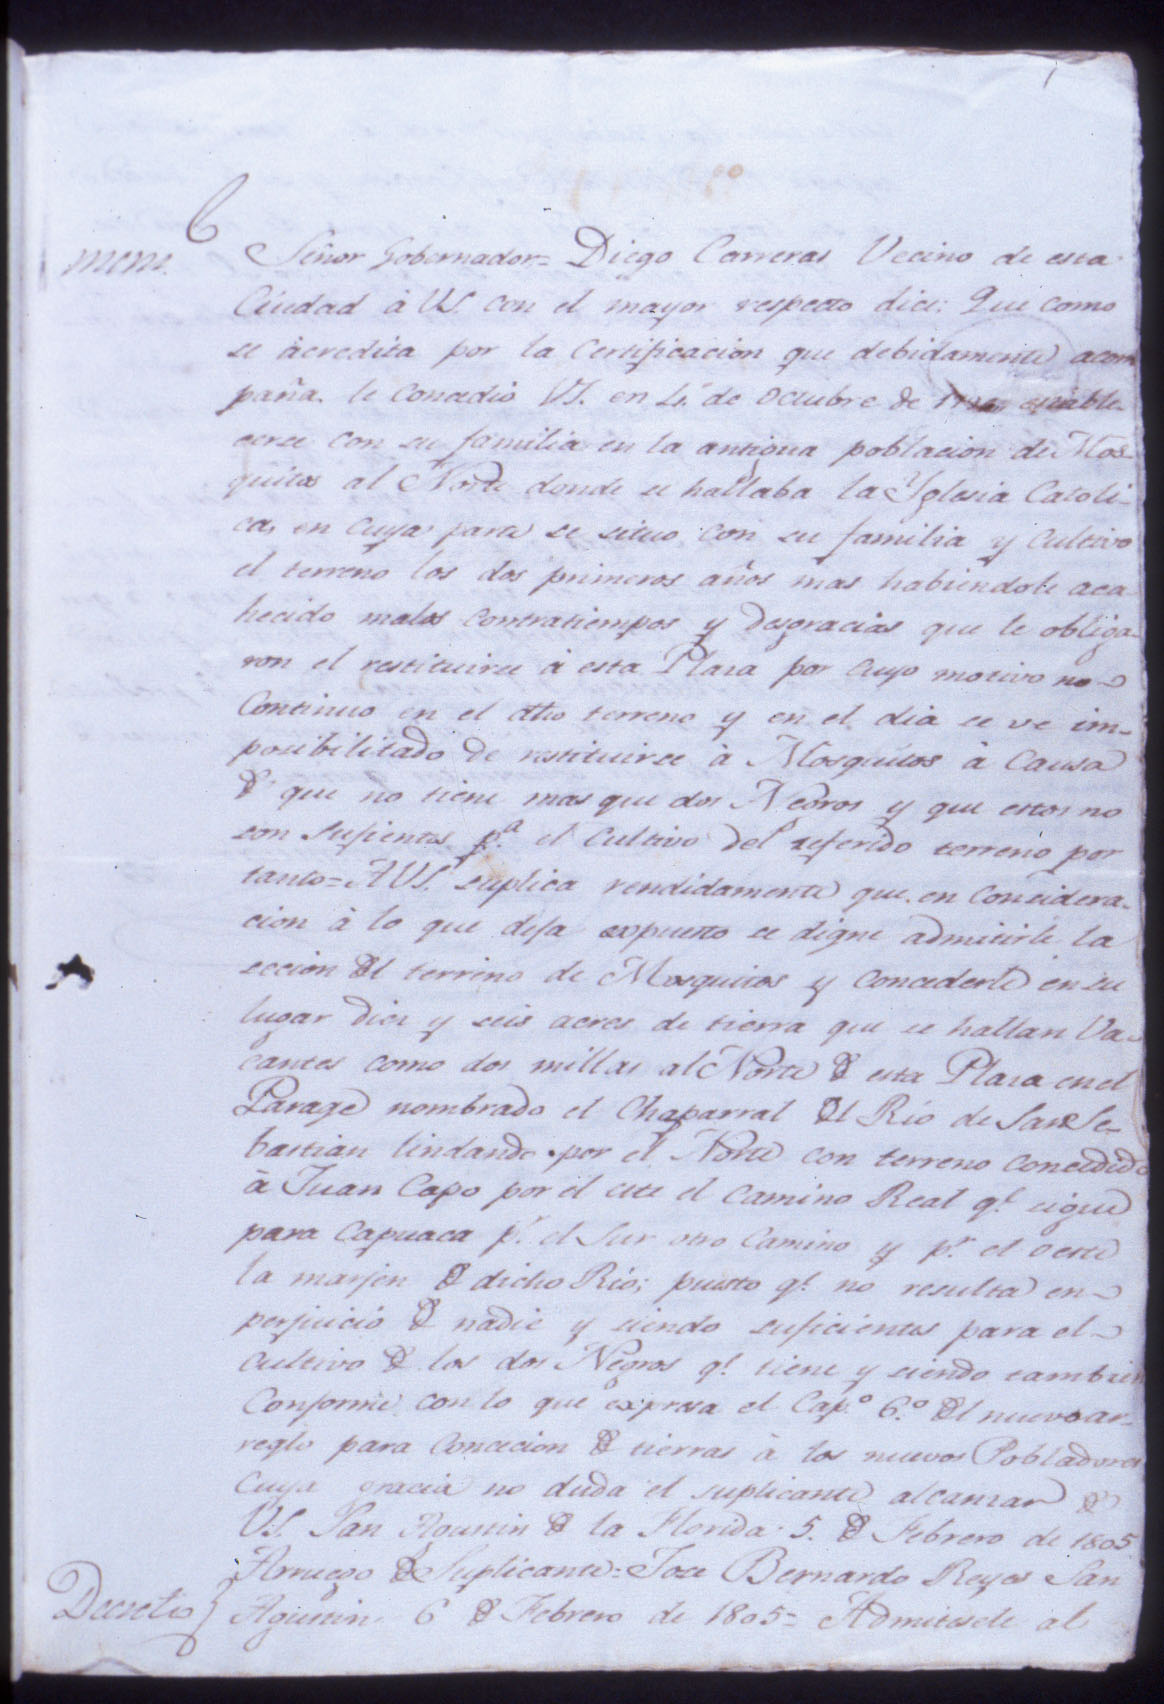 1
6
mem.
Señor Gobernador= Diego Carreras Vecino de esta
Ciudad à VS. con el mayor respecto dice: Que como
se àcredita por la Certificacion que debidamente acom
paña. le Concedio VS. en 4. de Octubre de estable-
cerse con su familia en la antigua poblacion de Mos-
quitos al Norte donde se hallaba la Yglesia Catoli-
ca, en cuya parte se situo con su familia y Cultivo
el terreno los dos primeros años mas habiendole aca
hecido malos contratiempos y desgracias que le obliga-
ron el restituirse à esta Plaza por cuyo motivo no
Continuo en el dho terreno y en el dia se ve im-
posibilitado de restituirse à Mosquitos à Causa
de que no tiene mas que dos Negros y que estos no
son sufientes pa. el Cultivo del referido terreno por
tanto= A VS. suplica rendidamente que en Considera-
cion à lo que deja expuesto se digne admitirle la
seccion del terreno de Mosquitos y Concederle en su
lugar diez y seis acres de tierra que se hallan Va-
cantes como dos millas al Norte de esta Plaza en el
Parage nombrado el Chaparral del Rio de San Se-
bastian lindando por el Norte con terreno concedido
à Juan Capo por el este el Camino Real qe. sigue
para Capuaca pr. el Sur otro Camino y pr. el oeste
la marjen de dicho Rio; puesto qe. no resulta en
perjuicio de nadie y siendo suficientes para el
cultivo de los dos Negros qe. tiene y siendo tambien
Conforme con lo que expresa el Capo. 6.o del nuevo ar-
reglo para Concecion de tierras à los nuevos Pobladores
Cuya gracia no duda el suplicante alcanzar de
VS. San Agustin de la Florida 5. de Febrero de 1805
Arruego de Suplicante= Jose Bernardo Reyes San
Decreto} Agustin 6 de Febrero de 1805= Admitesele al